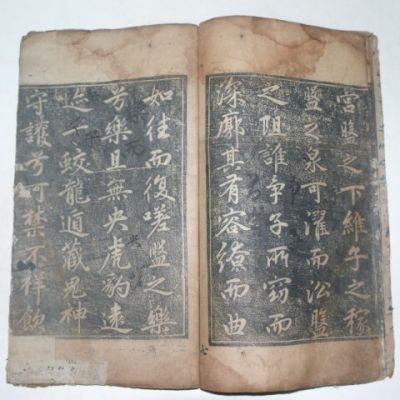 宮盤之下維子之稼
盤之泉可濯而沿盤
之阻誰爭子所窈而
深廓其有容繚而曲
如往而復嗟盤之樂
兮樂且無央虎豹遠
迹兮蛟龍遁藏鬼神
守護兮呵禁不祥飲